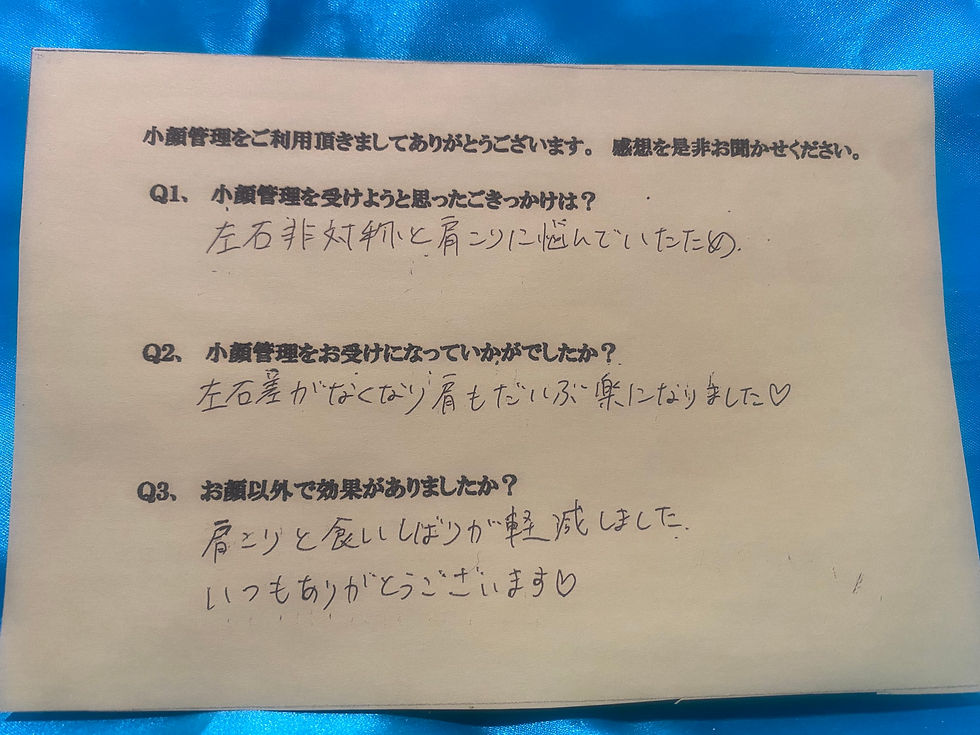 小顔管理をご利用頂きましてありがとうございます。 感想を是非お聞かせください。
Q1、 小顔管理を受けようと思ったごきっかけは？
左右非対称と肩こりに悩んでいたため.
Q2、 小顔管理をお受けになっていかがでしたか？
左右差がなくなり肩もだいぶ楽になりました♡
Q3、 お顔以外で効果がありましたか？
肩こりと食いしばりが軽減しました.
いつもありがとうございます♡